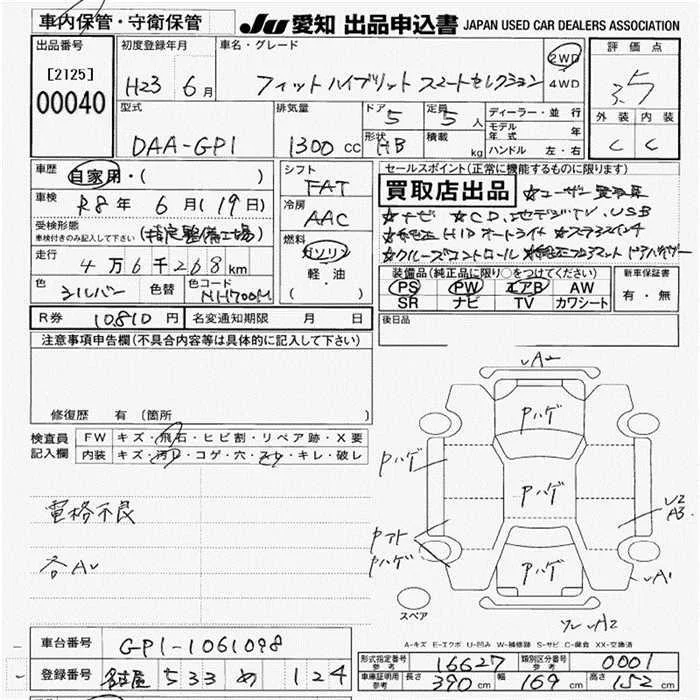 車内保管・守衛保管
JU 愛知 出品申込書 JAPAN USED CAR DEALERS ASSOCIATION
出品番号
[2125]
00040
初度登録年月
H23 6月
車名・グレード
フィットハイブリット スマートセレクション
2WD
4WD
評価点
3.5
外装 内装
C C
型式
DAA-GP1
排気量
1300 cc
ドア
5
定員
5 人
形状
HB
積載
kg
ディーラー・並行
モデル年式 年
ハンドル 左・右
車歴
自家用・( )
車検
R8年 6月(19日)
受検形態
車検付きのみ記入して下さい
(指定整備工場)
走行
4万6千268km
色
シルバー
色替
色コード
NH700M
シフト
FAT
冷房
AAC
燃料
ガソリン
軽・油
( )
セールスポイント(正常に機能するものに限ります)
買取店出品 ☆ユーザー買取車
☆ナビ ☆CD,地デジTV,USB
☆純正HIDオートライト ☆ステアスイッチ
☆クルーズコントロール ☆純正フロアマット ドアバイザー
装備品(純正品に限り○をつけてください)
PS PW エアB AW
SR ナビ TV カワシート
新車保証書
有・無
R券 10810円
名変通知期限 月 日
後日品
注意事項申告欄(不具合内容等は具体的に記入して下さい)
修復歴 有(箇所 )
検査員
記入欄
FW キズ・飛石・ヒビ割・リペア跡・X要
内装 キズ・汚レ・コゲ・穴・スレ・キレ・破レ
電格不良
各AU
UA2
Pハゲ
Pハゲ
Pハゲ
Pハゲ
Pハゲ
U2
A3
UA1
UA2
スペア
A-キズ E-エクボ U-凹み W-補修跡 S-サビ C-腐食 XX-交換済
車台番号
GP1-1061098
登録番号
名古屋 533 め 124
形式指定番号
参考
16627
類別区分番号
参考
0001
車庫証明用
参考
長さ 390 cm 幅 169 cm 高さ 152 cm